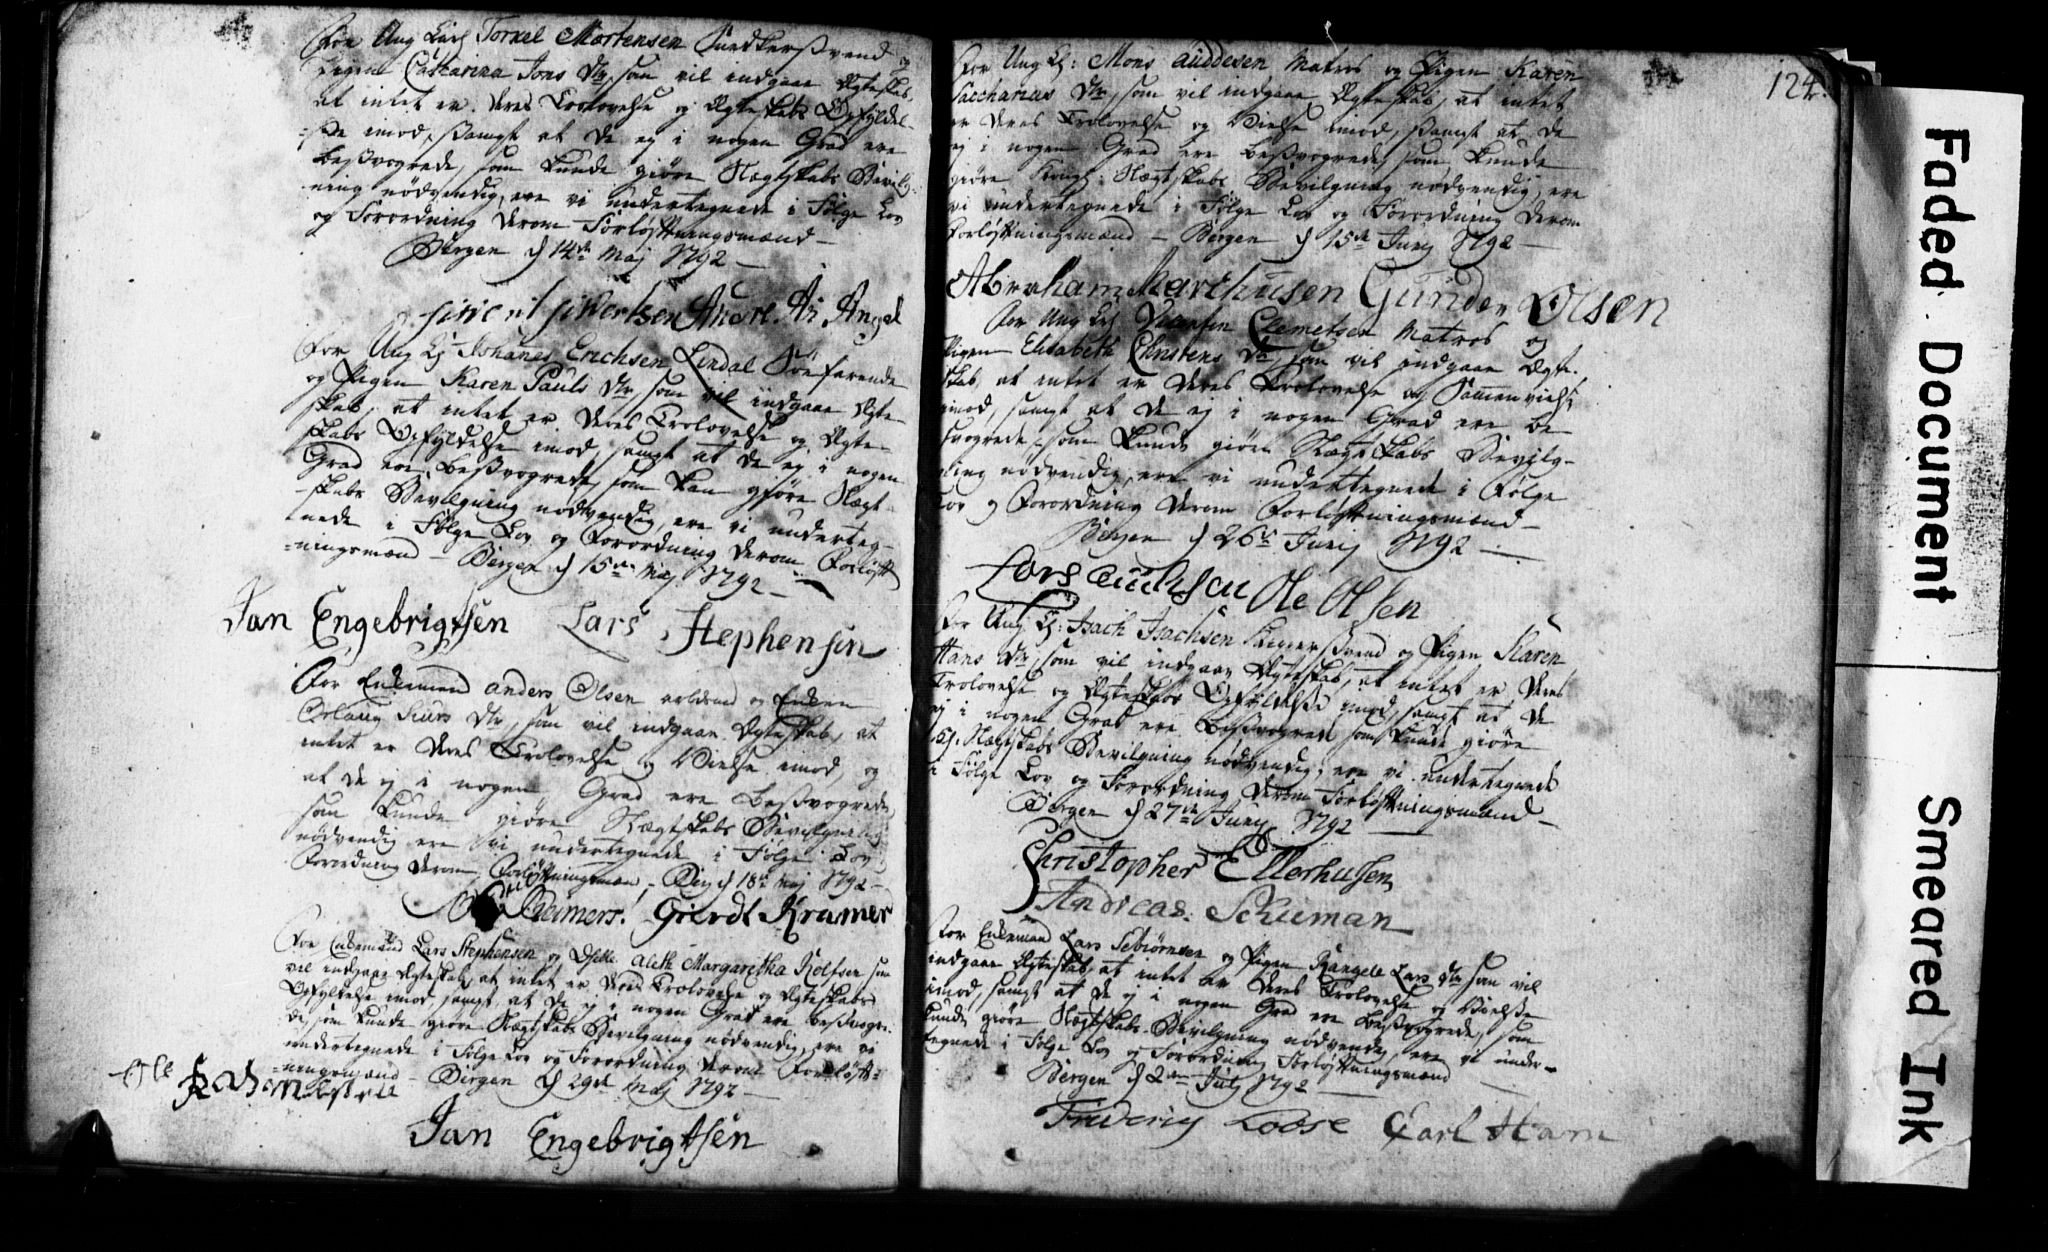 For Ung Karl Torkel Mortensen Snedkersvend og
Pigen Catharina Jons Dtr, som vil indgaae Ægteskab,
at intet er deres Trolovelse og Ægteskabs Opfyldel-
se imod, samt at de ej i nogen Grad ere
besvogrede, som kunde giøre Slægtskabs Bevilg-
ning nødvendig, ere vi undertegnede i Følge Lov
og Forordning derom Forløftningsmænd —
Bergen d 14de Maj 1792 —
Sivert Sivertsen
For Ung Kl Johanes Erichsen Lindal Söefarende
og Pigen Karen Pauls Dtr som vil indgaae Ægte
skab, at intet er deres Trolovelse og Ægte
skabs Opfyldelse imod, samt at de ej i nogen
Grad ere besvogrede, som kan giöre Slægt
skabs Bevilgning nødvendig, ere vi underteg-
nede i Følge Lov og Forordning derom Forløft
=ningsmænd — Bergen d 15de Maj 1792 —
Jan Engebrigtsen Lars Stephensen
For Enkemand Anders Olsen og Enken
Dtr, som vil indgaae Ægteskab, at
intet er deres Trolovelse og Vielse imod, og
at de ej i nogen Grad ere besvogrede,
som kunde giøre Slægtskabs Bevilgning
nødvendig ere vi undertegnede i Følge Lov
Forordning derom Forløftningsmæn — d 18de Maj 1792 —
Reimers. Gierdt Kramer
For Enkemand Lars Stephensen og Aleth Margaretha Rolfsen som
vil indgaae Ægteskab, at intet er deres Trolovelse og Ægteskabs
Opfyldelse imod, samt at de ej i nogen Grad ere besvogre-
de, som kunde giøre Slægtskabs Bevilgning nødvendig, ere vi
undertegnede i Følge Lov og Forordning derom Forløft-
=ningsmænd — Bergen d 29de Maj 1792 —
Jan Engebrigtsen
124.
For Ung Kl: Mons Auddesen Matros og Pigen Karen
Saccharias Dtr, som vil indgaae Ægteskab, at intet
er deres Trolovelse og Vielse imod, samt at de
ej i nogen Grad ere besvogrede, som kunde
giøre Kongl: Slægtskabs Bevilgning nødvendig, ere
vi undertegnede i Følge Lov og Forordning derom
Forløftningsmænd — Bergen d 15de Junij 1792 —
Abraham Marthusen Gunder Olsen
For Ung Kl Clemetsen Matros og
Pigen Elisabeth Christens Dtr, som vil indgaae Ægte-
skab, at intet er deres Trolovelse og
imod, samt at de ej i nogen Grad ere be
svogrede, som kunde giøre Slægtskabs Bevilg-
ning nødvendig, ere vi undertegnede i Følge
Lov og Forordning derom Forløftningsmænd —
Bergen d 26de Junij 1792 —
Lars Ole Olsen
For Ung Kl: Isach Isachsen og Pigen Karen
Hans Dtr, som vil indgaae Ægteskab, at intet er deres
Trolovelse og Ægteskabs Opfyldelse imod, samt at de
ej i nogen Grad ere besvogrede som kunde giøre
Kgl. Slægtskabs Bevilgning nødvendig, ere vi undertegnede
i Følge Lov og Forordning derom Forløftningsmænd —
Bergen d 27de Junij 1792 —
Christopher Ellerhusen
Andreas Schuman
For Enkemand Lars Sebiörnsen og Pigen Rangele Lars Dtr som vil
indgaae Ægteskab, at intet er deres Trolovelse og Vielse
imod, samt at de ej i nogen Grad ere besvogrede, som
kunde giøre Slægtskabs Bevilgning nødvendig, ere vi under-
tegnede i Følge Lov og Forordning Forløftningsmænd
Bergen d 2den Julij 1792 —
Friderich Loose Carl Ham
Faded Document
Smeared Ink